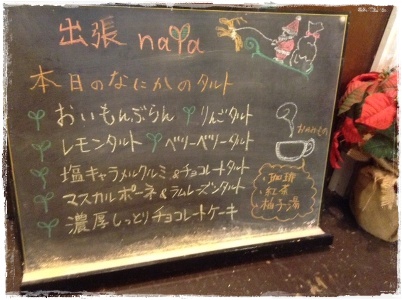 出張 naYa
本日のなにかのタルト
おいもんぶらん りんごタルト
レモンタルト ベリーベリータルト
塩キャラメルクルミ&チョコレートタルト
マスカルポーネ&ラムレーズンタルト
濃厚しっとりチョコレートケーキ
おのみもの
珈琲
紅茶
柚子湯